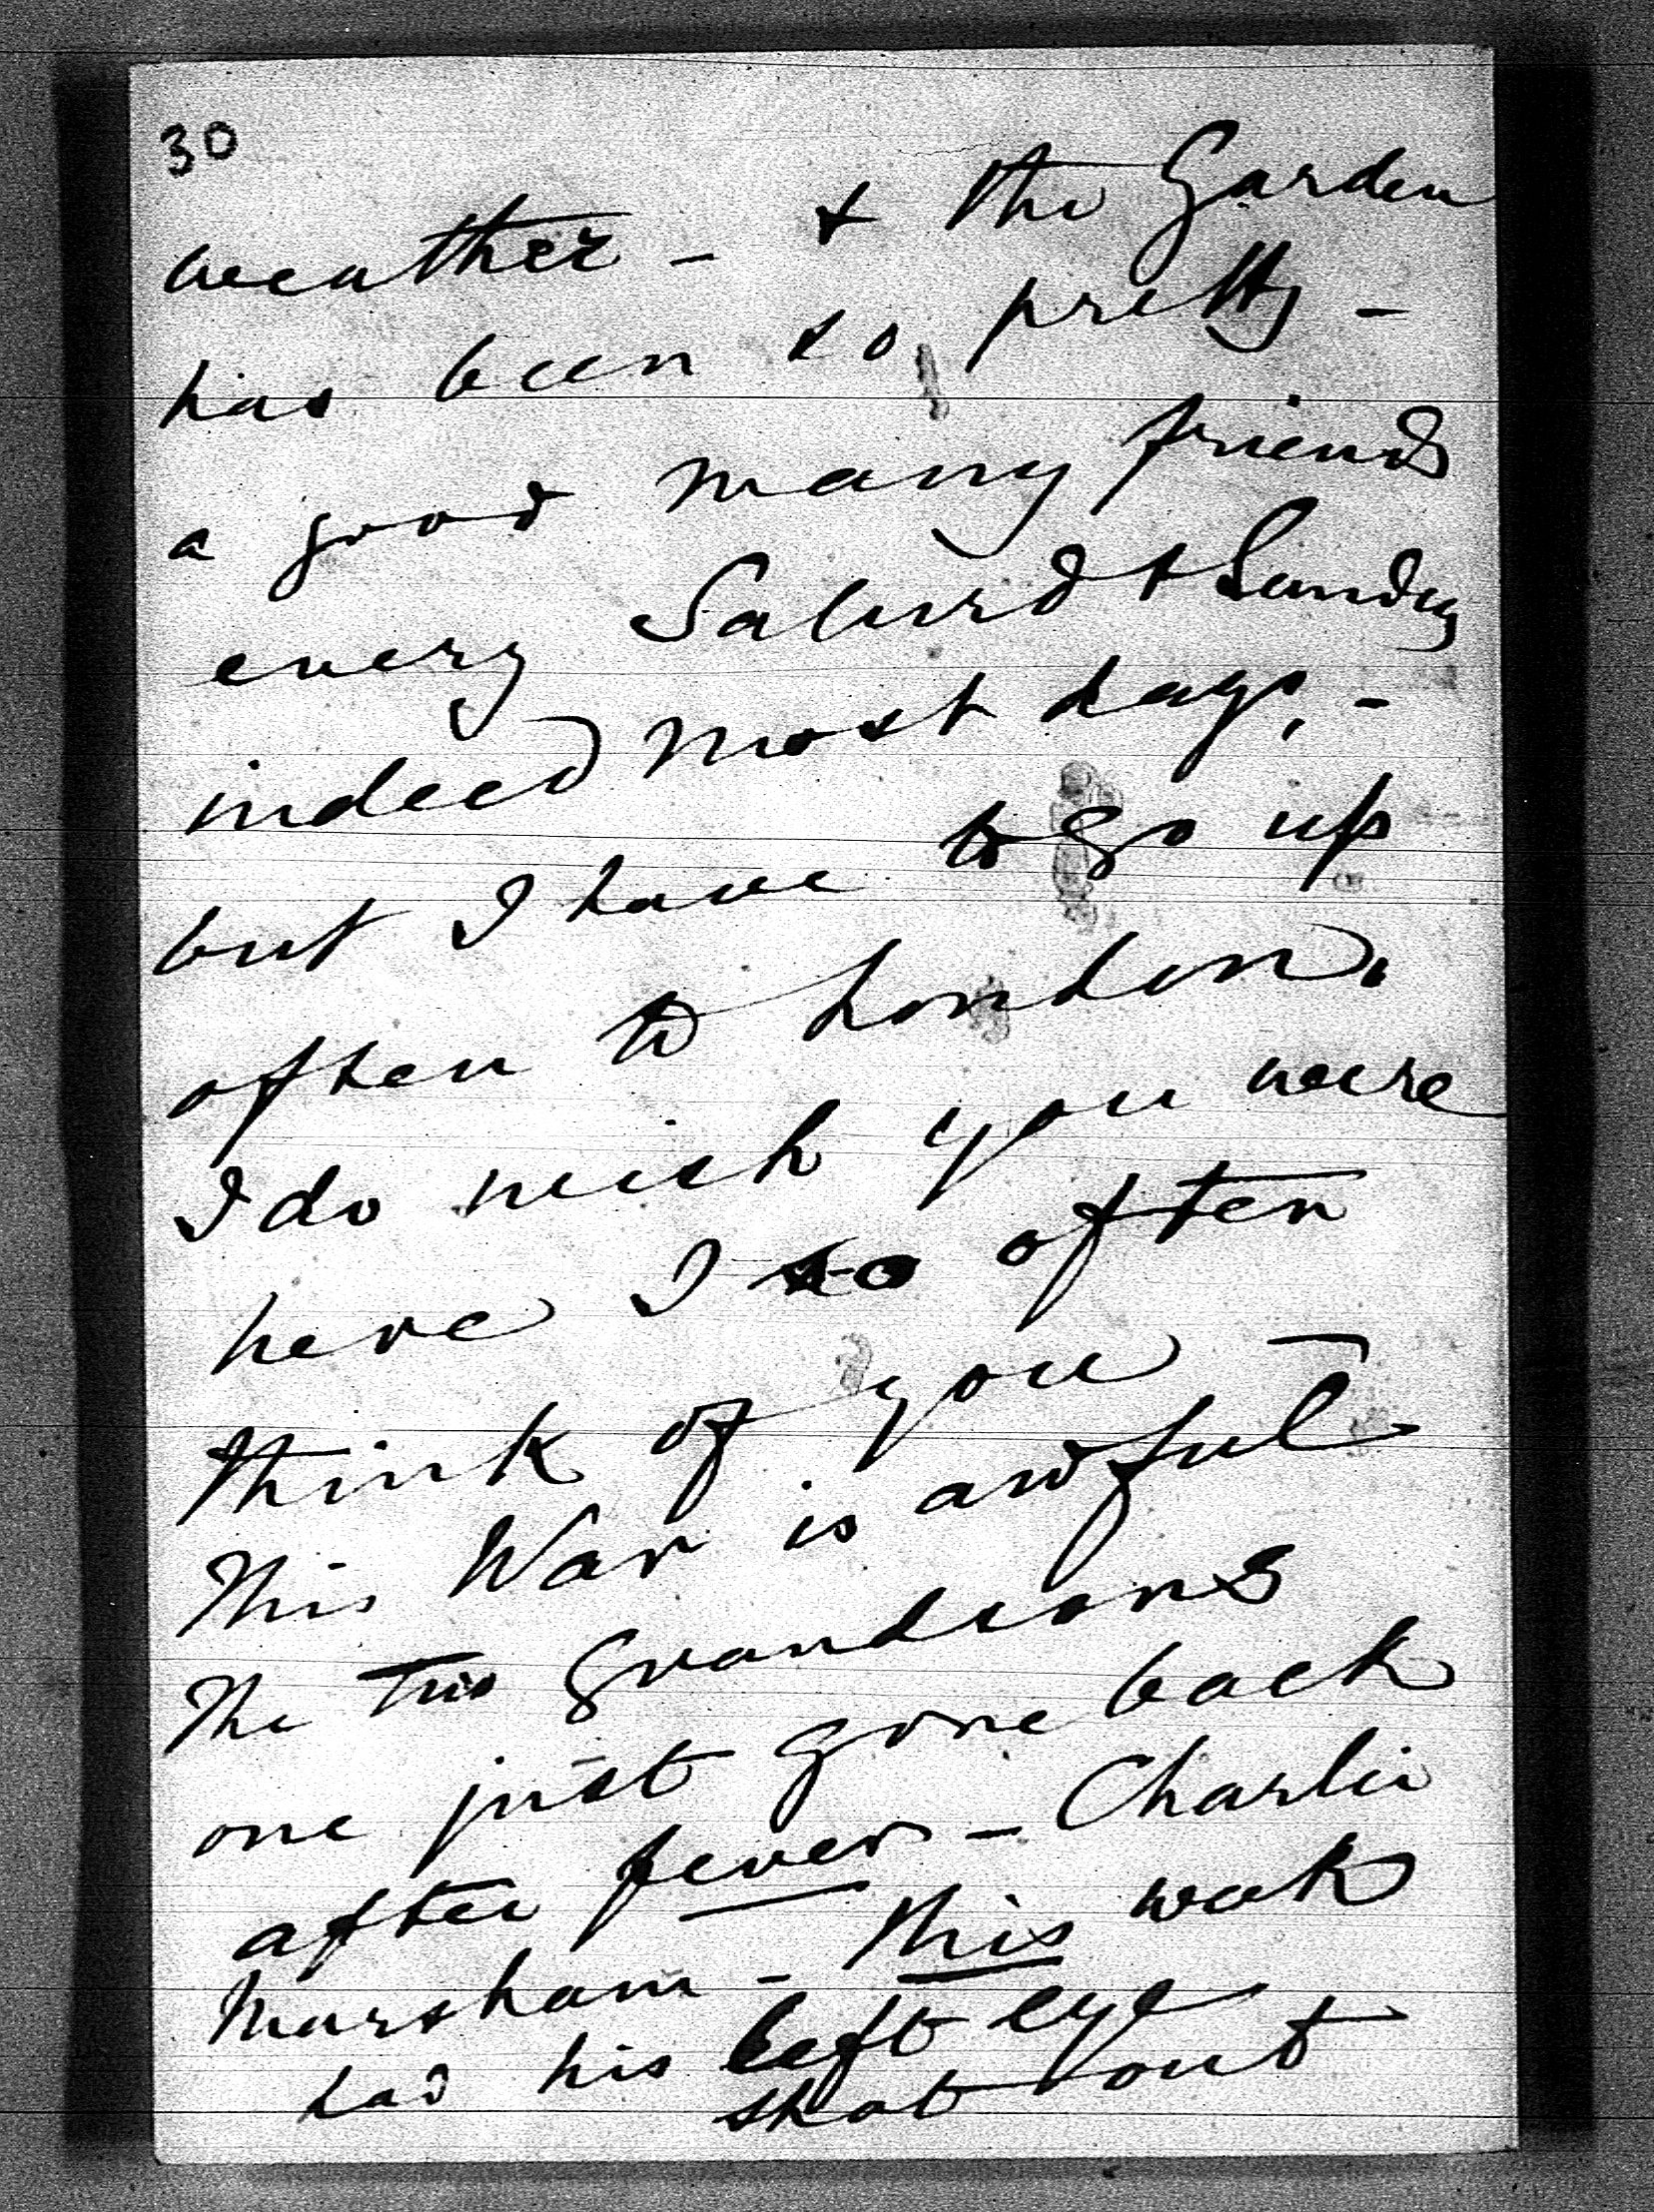 30
weather - & the Garden
has been so pretty -
a good many friends
every Saturd & Sunday
indeed most days, -
but I have to go up
often to London.
I do wish you were
here I so often
think of you -
This War is awful
The two Grandsons
one just gone back
after fever - Charlie
Marsham - this week
had his left eye
shot out